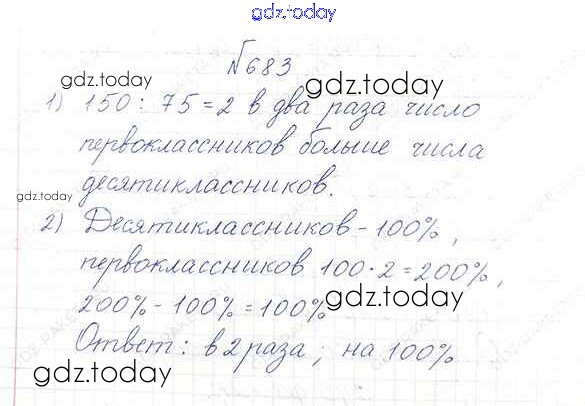 gdz.today
№683
gdz.today
gdz.today
1) 150 : 75 = 2 в два раза число
первоклассников больше числа
gdz.today
десятиклассников.
2) Десятиклассников - 100%,
первоклассников 100 · 2 = 200%,
200% - 100% = 100%
gdz.today
Ответ: в 2 раза; на 100%
gdz.today